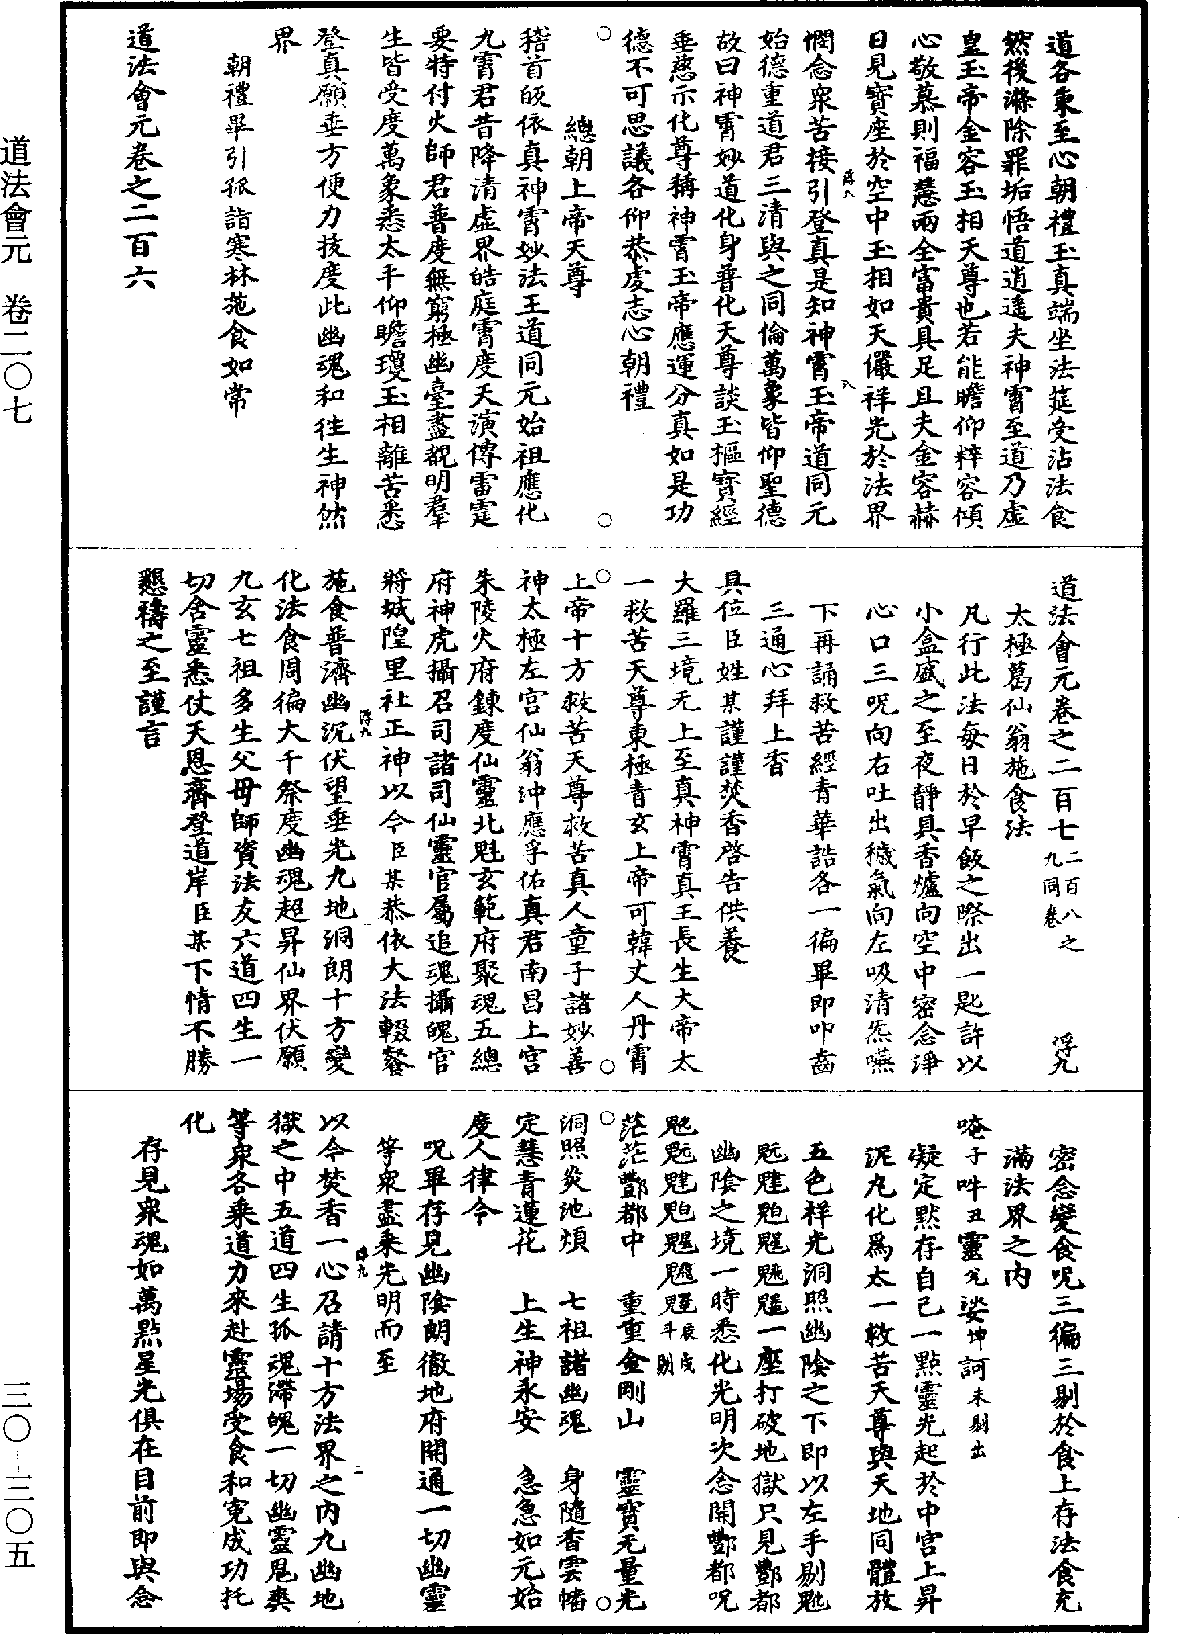 道法會元 卷二〇七
三〇—三〇五
道各秉至心朝禮玉真端坐法筵受沾法食
然後滌除罪垢悟道逍遙夫神霄至道乃虛
皇玉帝金容玉相天尊也若能瞻仰粹容傾
心敬慕則福慧兩全富貴具足且夫金容赫
日見寶座於空中玉相如天儼祥光於法界
憫念衆苦接引登真是知神霄玉帝道同元
始德重道君三清與之同倫萬象皆仰聖德
故曰神霄妙道化身普化天尊談玉樞寶經
垂慈示化尊稱神霄玉帝應運分真如是功
德不可思議各仰恭虔志心朝禮
總朝上帝天尊
稽首皈依真神霄妙法王道同元始祖應化
九霄君昔降清虛界皓庭霄度天演傳雷霆
要特付火師君普度無窮極幽臺盡覩明羣
生皆受度萬象悉太平仰瞻瓊玉相離苦悉
登真願垂方便力拔度此幽魂和往生神然
界
朝禮畢引孤詣寒林施食如常
道法會元卷之二百六
道法會元卷之二百七 二百八之九同卷 浮九
太極葛仙翁施食法
凡行此法每日於早飯之際出一匙許以
小盒盛之至夜靜具香爐向空中密念淨
心口三呪向右吐出穢氣向左吸清炁嚥
下再誦救苦經青華誥各一徧畢即叩齒
三通心拜上香
具位臣姓某謹謹焚香啓告供養
大羅三境无上至真神霄真王長生大帝太
一救苦天尊東極青玄上帝可韓丈人丹霄
上帝十方救苦天尊救苦真人童子諸妙善
神太極左宮仙翁沖應孚佑真君南昌上宮
朱陵火府鍊度仙靈北魁玄範府聚魂五總
府神虎攝召司諸司仙靈官屬追魂攝魄官
將城隍里社正神以今臣某恭依大法輟餐
施食普濟幽沉伏望垂光九地洞朗十方變
化法食周徧大千祭度幽魂超昇仙界伏願
九玄七祖多生父母師資法友六道四生一
切含靈悉仗天恩齊登道岸臣某下情不勝
懇禱之至謹言
密念變食呪三徧三剔於食上存法食充
滿法界之内
唵子吽丑靈兊娑坤訶未剔出
凝定默存自己一點靈光起於中宮上昇
泥丸化爲太一救苦天尊與天地同體放
五色祥光洞照幽陰之下即以左手剔魁
一座打破地獄只見酆都
幽陰之境一時悉化光明次念開酆都呪
茫茫酆都中　重重金剛山　靈寶无量光
洞照炎池煩　七祖諸幽魂　身隨香雲幡
定慧青蓮花　上生神永安　急急如元始
度人律令
呪畢存見幽陰朗徹地府開通一切幽靈
等衆盡乘光明而至
以今焚香一心召請十方法界之内九幽地
獄之中五道四生孤魂滯魄一切幽靈鬼爽
等衆各乘道力來赴靈場受食和寃成功托
化
存見衆魂如萬點星光俱在目前即與念